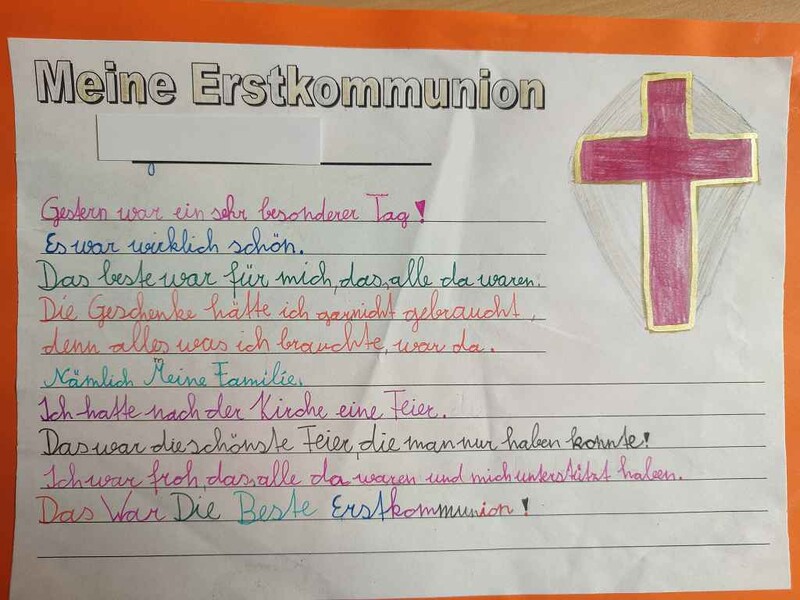 Meine Erstkommunion
Gestern war ein sehr besonderer Tag!
Es war wirklich schön.
Das beste war für mich, das, alle da waren.
Die Geschenke hätte ich garnicht gebraucht,
denn alles was ich brauchte, war da.
Nämlich Meine Familie.
Ich hatte nach der Kirche eine Feier.
Das war die schönste Feier, die man nur haben konnte!
Ich war froh, das, alle da waren und mich unterstützt haben.
Das War Die Beste Erstkommunion!